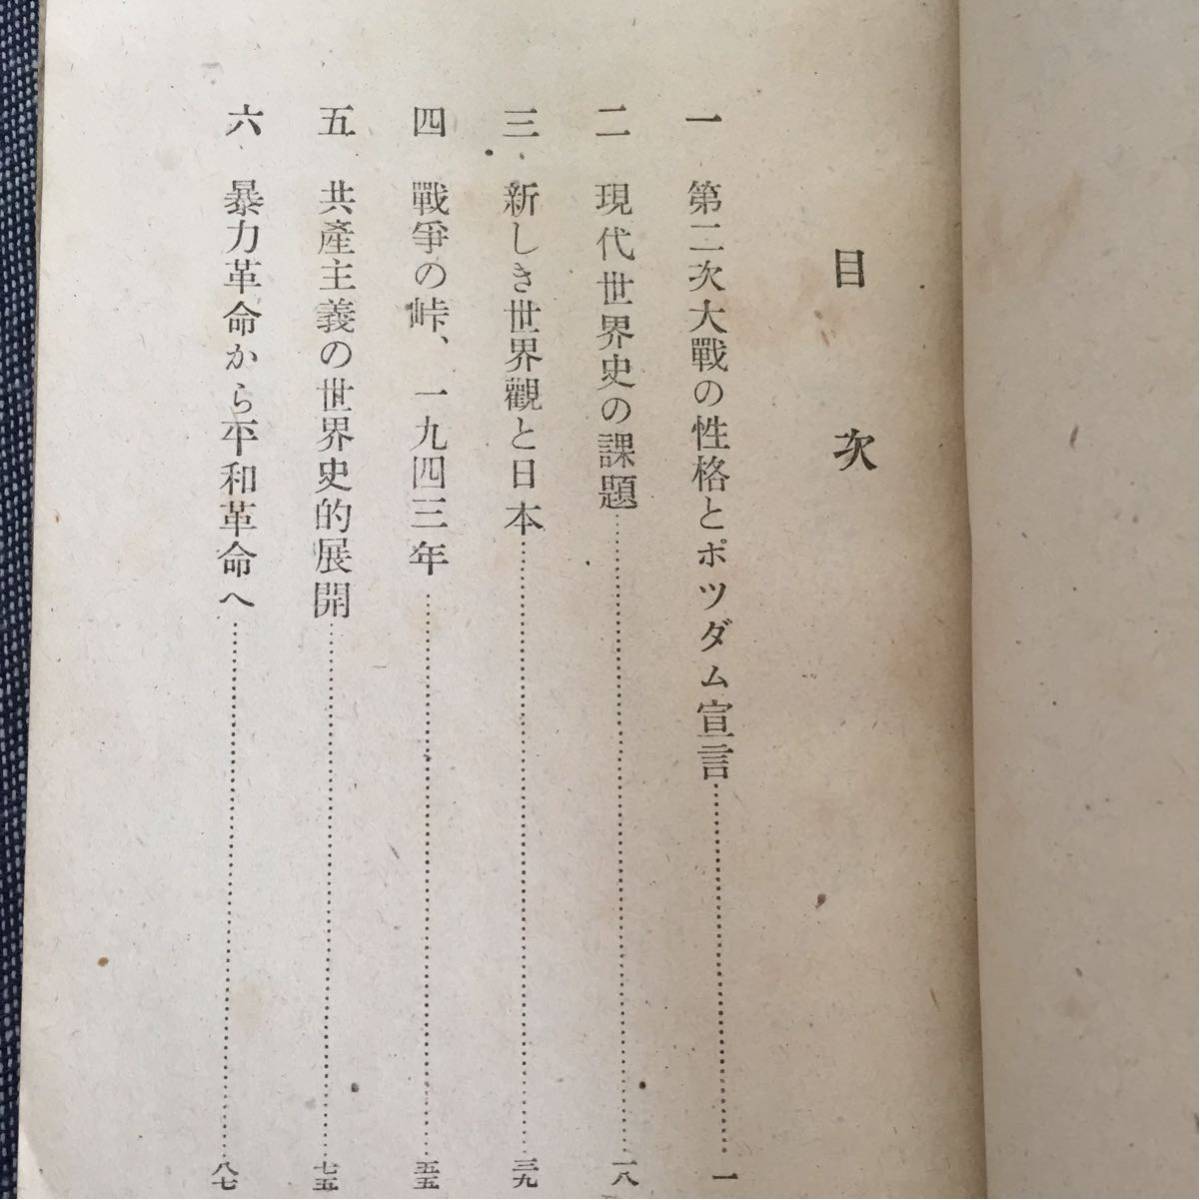 目次
一 第二次大戰の性格とポツダム宣言……………一
二 現代世界史の課題……………一八
三 新しき世界觀と日本……………三九
四 戰爭の峠、一九四三年……………五五
五 共產主義の世界史的展開……………七五
六 暴力革命から平和革命へ……………八七